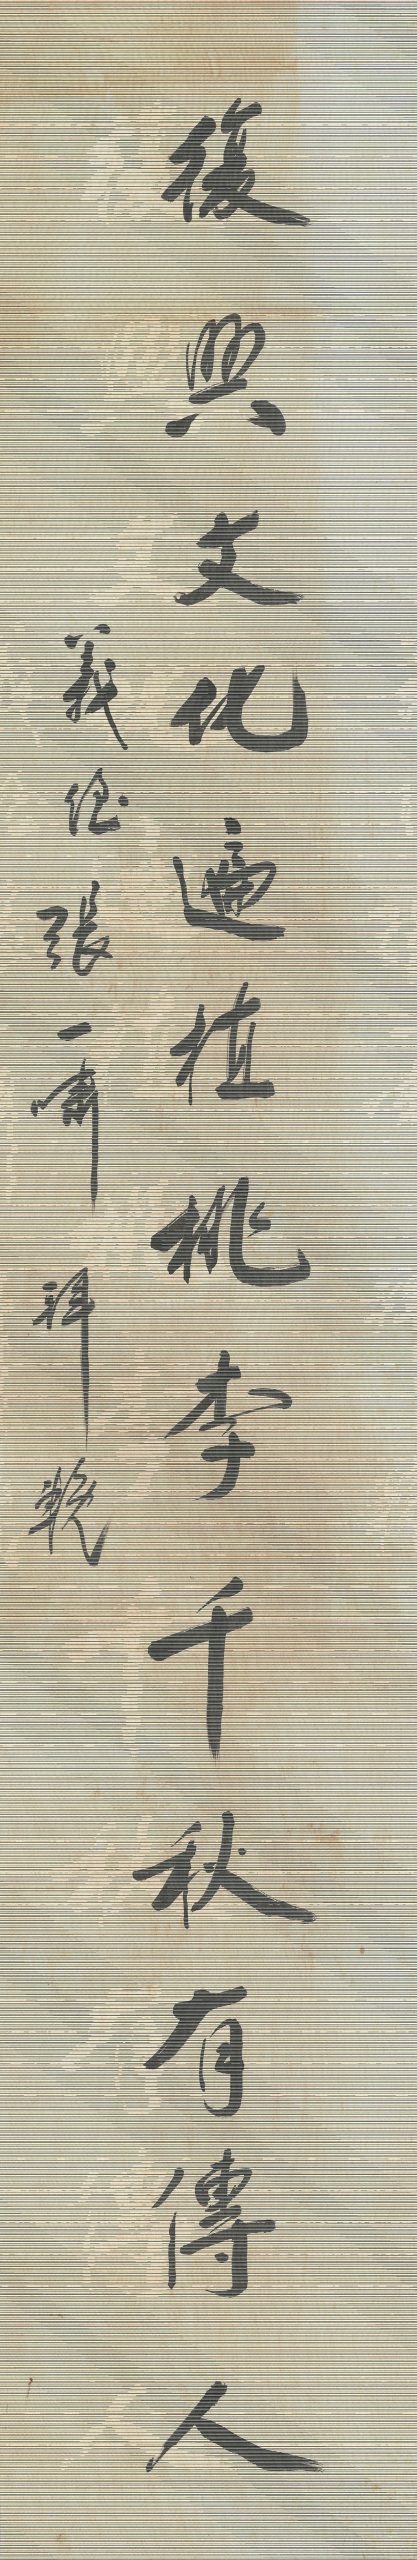 復興文化遍植桃李千秋有傳人
義侄張一嘯拜輓